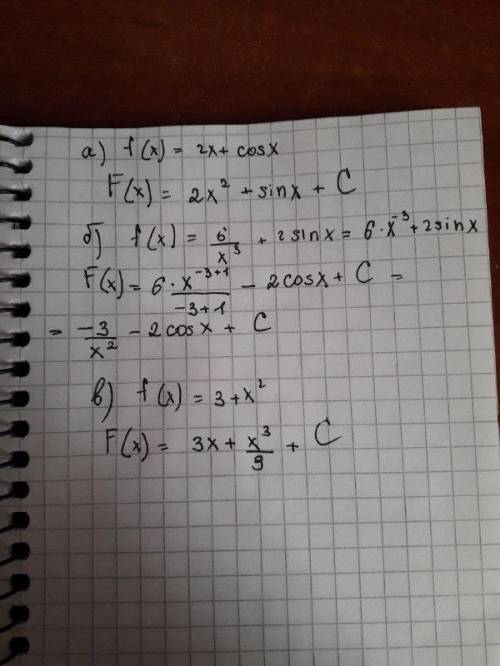 а) f(x) = 2x + cosx
F(x) = 2x² + sinx + C
б) f(x) = 6/x³ + 2sinx = 6·x⁻³ + 2sinx
F(x) = 6·x⁻³⁺¹/-3+1 - 2cosx + C =
= -3/x² - 2cosx + C
в) f(x) = 3 + x²
F(x) = 3x + x³/9 + C